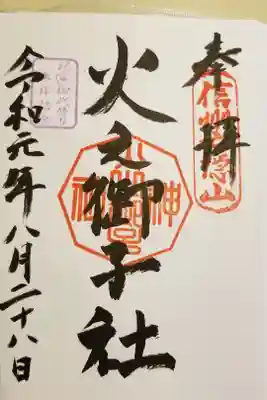 奉拝
信州戸隠山
火之御子社
令和元年八月二十八日